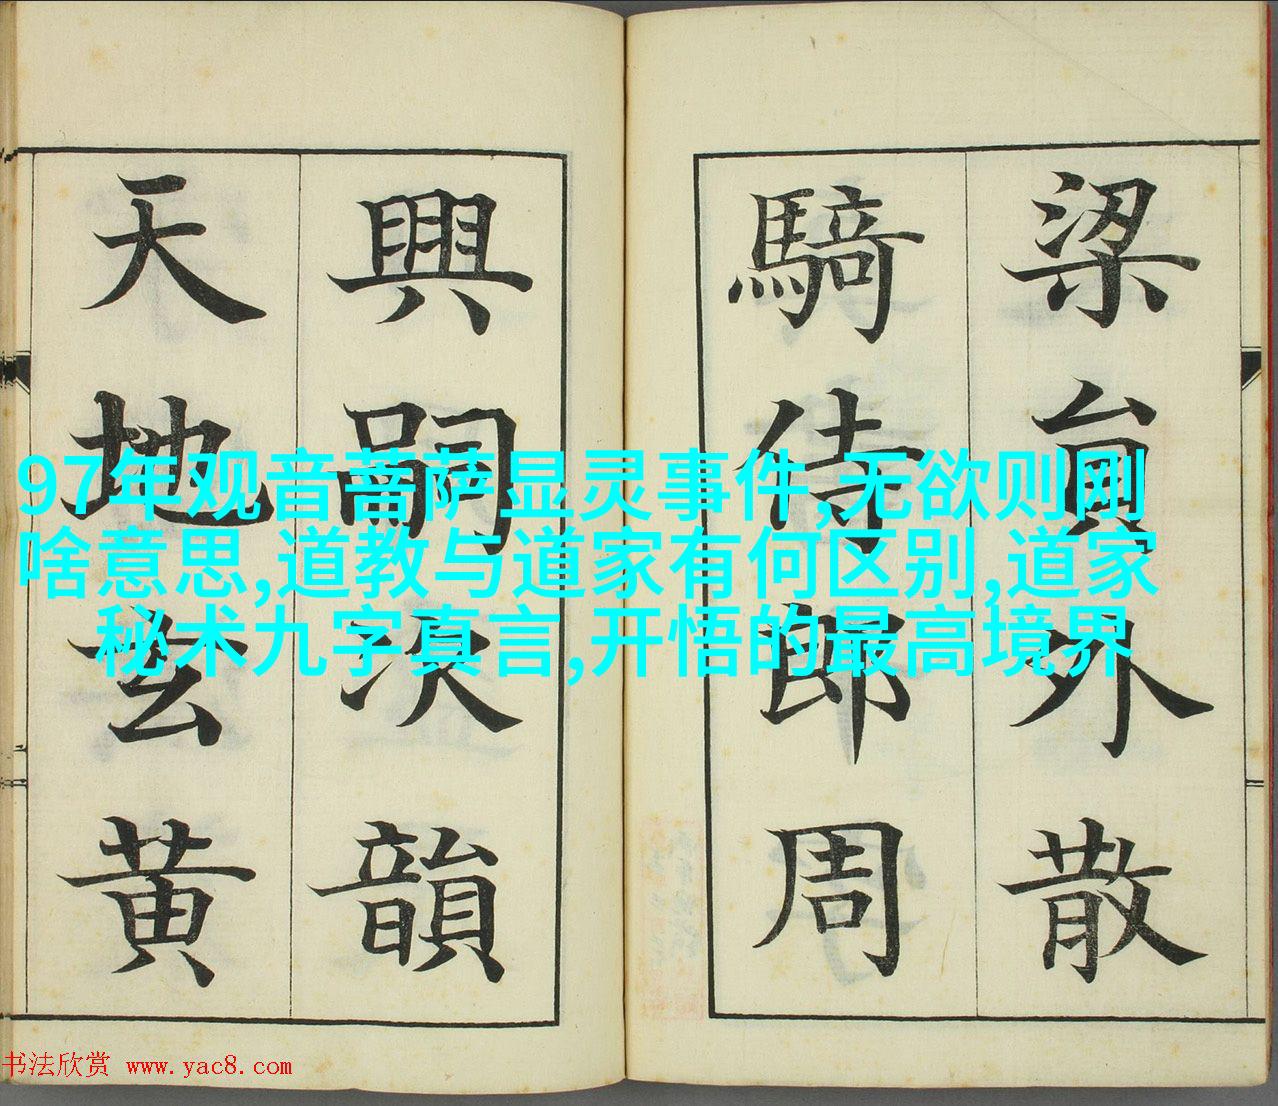 梁員外散
騎侍郎周
興嗣次韻
天地玄黃
97年观音菩萨显灵事件,无欲则刚
啥意思,道教与道家有何区别,道家
秘术九字真言,开悟的最高境界
书法欣赏 www.yac8.com